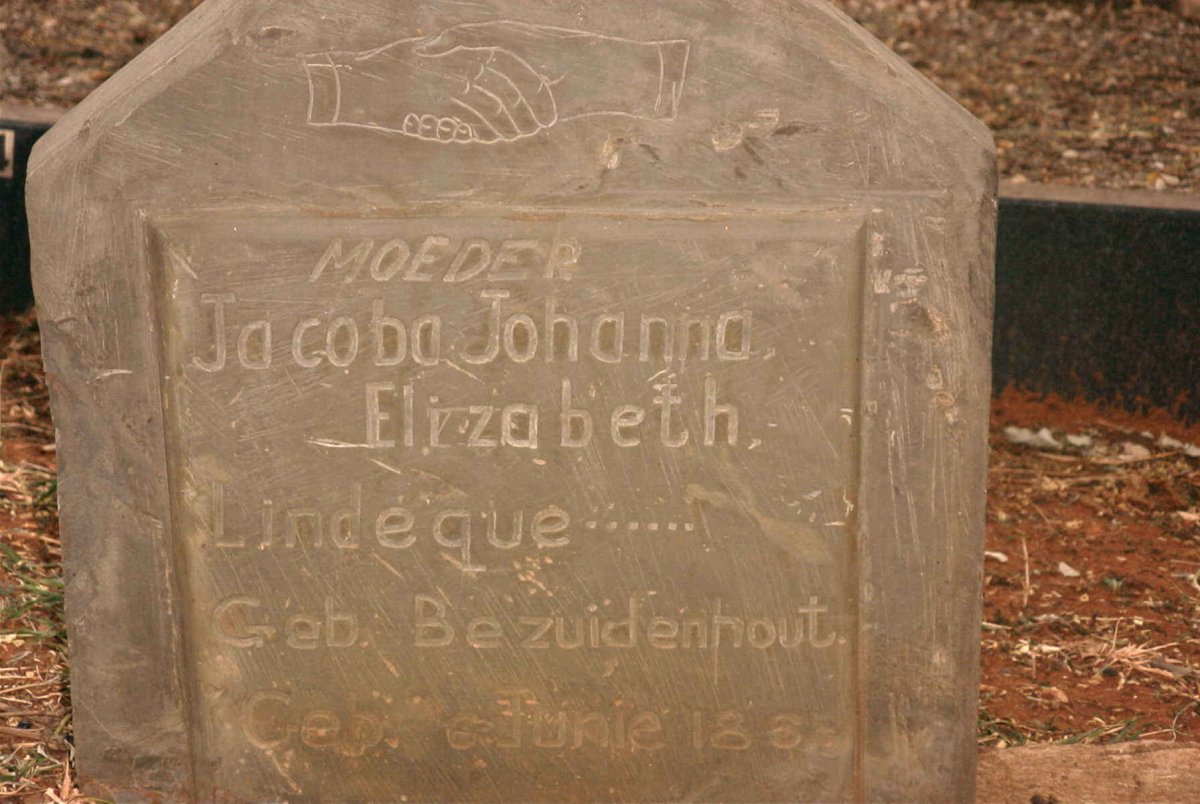 MOEDER
Jacoba Johanna,
Elizabeth,
Lindeque.......
Geb. Bezuidenhout.
Geb. Junie
4